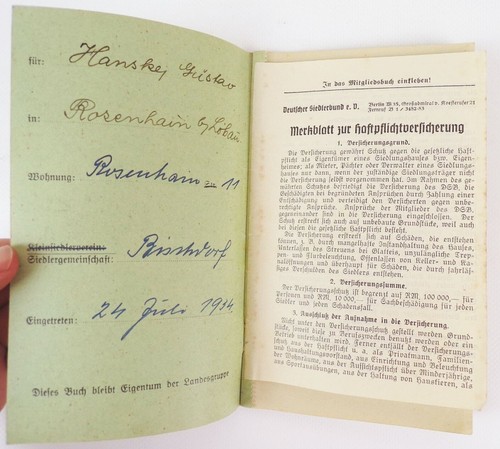 für: Hanske, Gustav
in: Rosenhain b/Löbau
Wohnung: Rosenhain 11
Kleinsiedlerverein:
Siedlergemeinschaft: Bischdorf
Eingetreten: 24 Juli 1934.
Dieses Buch bleibt Eigentum der Landesgruppe
In das Mitgliedsbuch einkleben!
Deutscher Siedlerbund e. V.
Berlin W 15,
Fernruf
Merkblatt zur Haftpflichtversicherung
1. Versicherungsgrund.
Die Versicherung gewährt Schutz gegen die gesetzliche Haft-
pflicht als Eigentümer eines Siedlungshauses bzw. Eigen-
heimes; als Mieter, Pächter oder Verwalter eines Siedlungs-
hauses nur dann, wenn der zuständige Siedlungsträger nicht
die Versicherung selbst vorgenommen hat. Im Rahmen des ge-
währten Schutzes befriedigt die Versicherung des DSB, die
Berechtigten und wehrt unberechtigte Ansprüche durch Zahlung einer
Entschädigung und verteidigt den Versicherten gegen unbe-
rechtigte Ansprüche. Ansprüche der Mitglieder des DSB,
gegeneinander sind in die Versicherung eingeschlossen. Der
Schutz erstreckt sich auch auf unbebaute Grundstücke, weil auch
dies im gesetzliche Haftpflicht besteht.
Die Versicherung erstreckt sich auf Schäden, die entstehen
können, z. B. durch mangelhafte Instandhaltung des Hauses,
Unterlassen des Streuens bei Glatteis, unzulängliche Treppen-
und Flurbeleuchtung, Offenlassen von Keller- und Ka-
nalöffnungen und überhaupt Schäden, die durch fahrläs-
siges Verschulden des Siedlers entstehen.
2. Versicherungssumme.
Der Versicherungsschutz ist begrenzt auf RM. 100 000,— für
Personen und RM. 10 000,— für Sachbeschädigung für jeden
Siedler und jeden Schadenfall.
3. Ausschluß der Aufnahme in die Versicherung.
Nicht unter den Versicherungsschutz gestellt werden Grund-
stücke, soweit diese zu Berufszwecken benutzt werden oder ein
Betrieb unterhalten wird. Ferner entfällt der Versicherungs-
schutz aus der Haftpflicht u. a. als Privatmann, Familien-
und Haushaltungsvorstand, aus Einrichtung und Beleuchtung
der Wohnräume, aus der Aufsichtspflicht über Minderjährige,
aus Sportausübungen, aus der Haltung von Haustieren, als